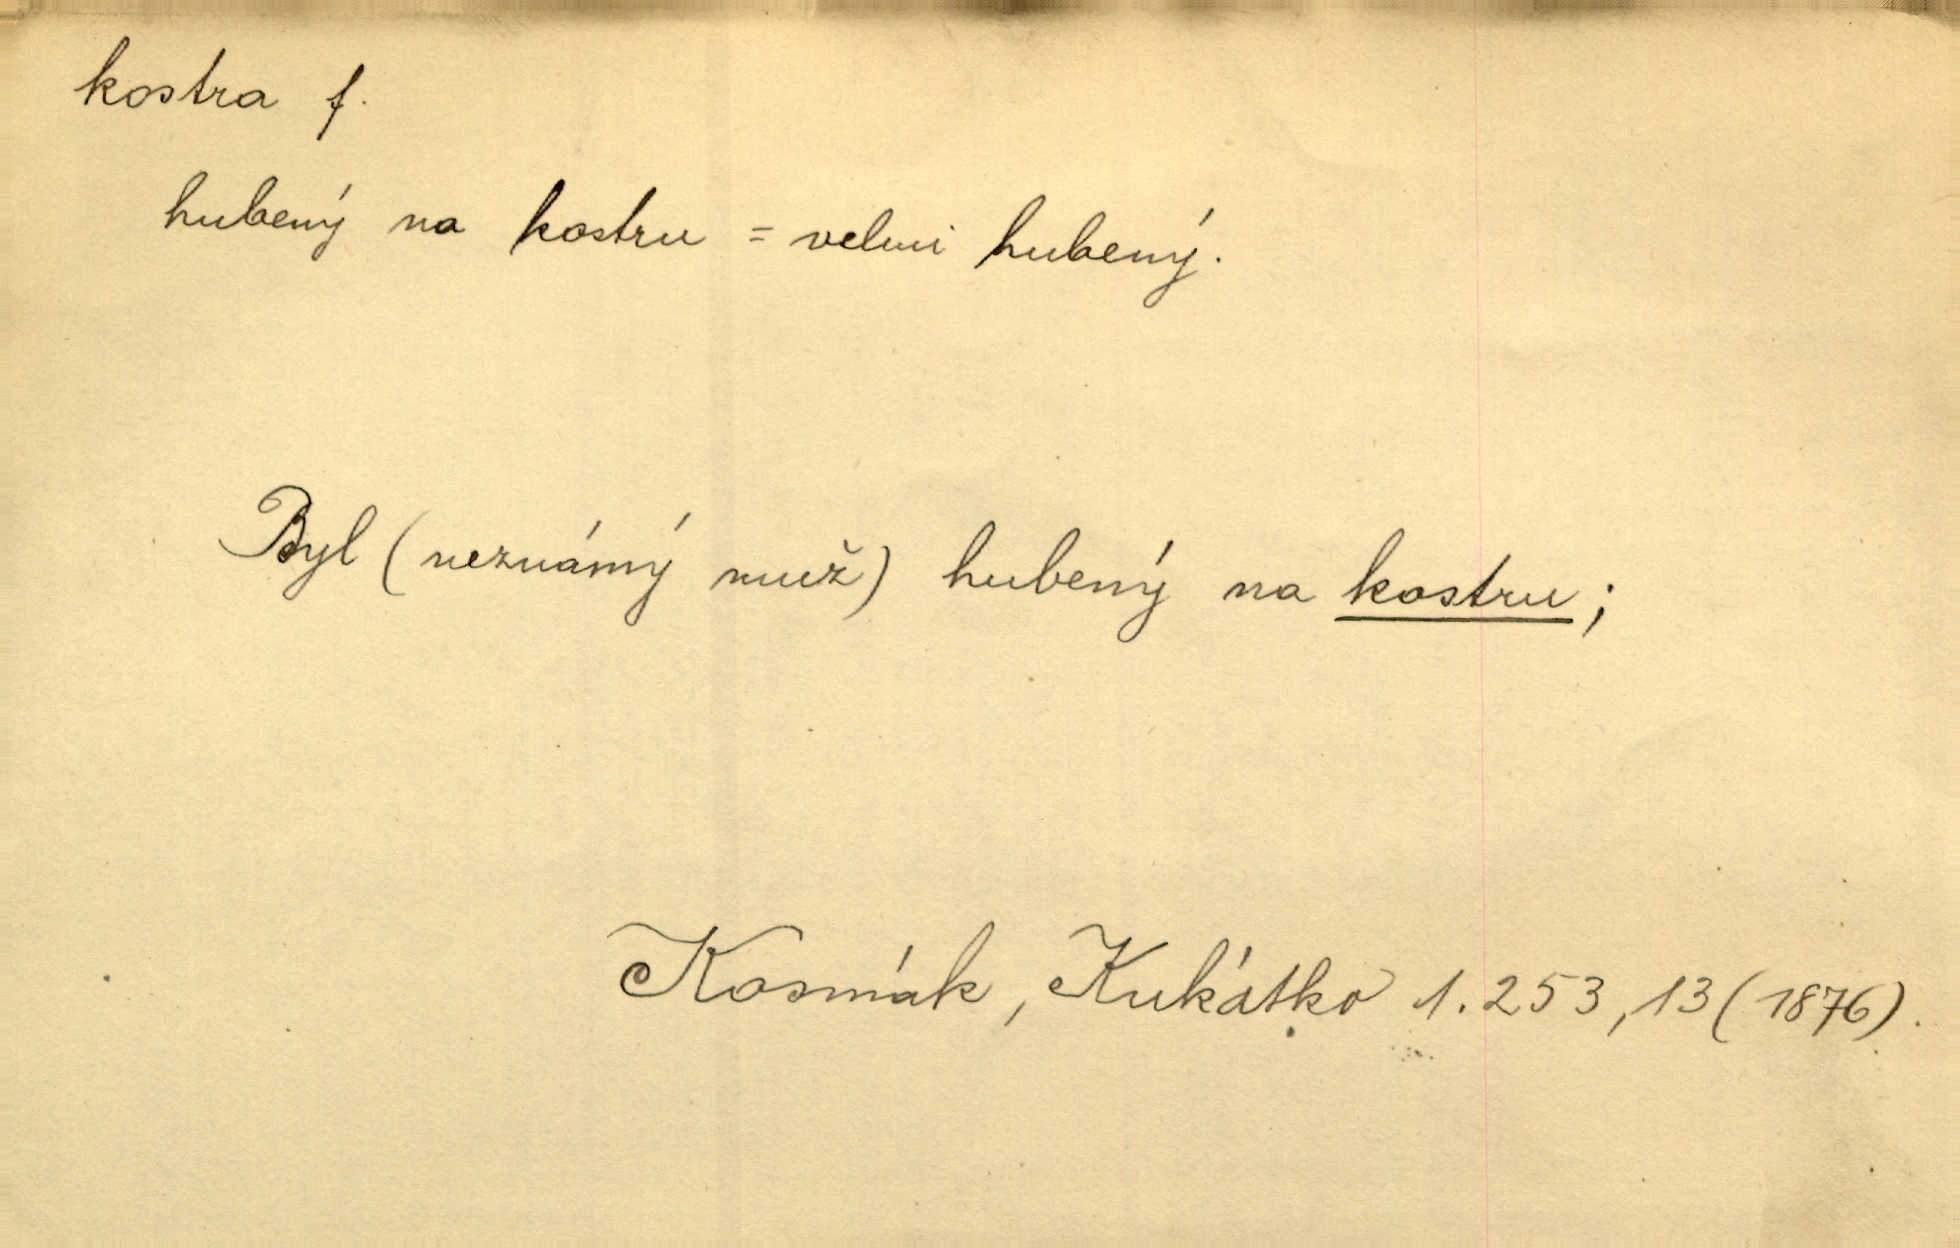 kostra f.
hubený na kostru = velmi hubený.
Byl (neznámý muž) hubený na kostru;
Kosmák, Kukátko 1.253,13 (1876).